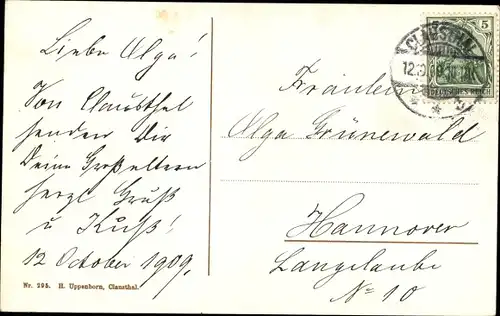 Liebe Olga!
Von Clausthal
senden Dir
Deine Großeltern
herzl. Gruß
u Kuß!
12 October 1909.
Nr. 295. H. Uppenborn, Clausthal.
5
DEUTSCHES REICH
CLAUSTHAL
12.
Fräulein
Olga Grünewald
Hannover
Langelaube
No 10